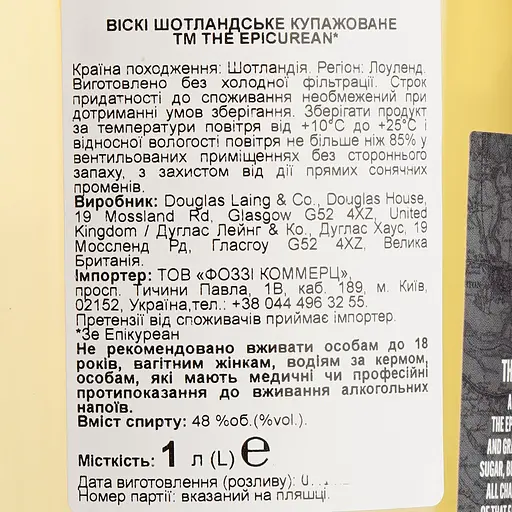 ВІСКІ ШОТЛАНДСЬКЕ КУПАЖОВАНЕ
ТМ THE EPICUREAN*
Країна походження: Шотландія. Регіон: Лоуленд.
Виготовлено без холодної фільтрації. Строк
придатності до споживання необмежений при
дотриманні умов зберігання. Зберігати продукт
за температури повітря від +10°C до +25°C і
відносної вологості повітря не більше ніж 85% у
вентильованих приміщеннях без стороннього
запаху, з захистом від дії прямих сонячних
променів.
Виробник: Douglas Laing & Co., Douglas House,
19 Mossland Rd, Glasgow G52 4XZ, United
Kingdom / Дуглас Лейнг & Ко., Дуглас Хаус, 19
Моссленд Рд, Гласгоу G52 4XZ, Велика
Британія.
Імпортер: ТОВ «ФОЗЗІ КОММЕРЦ»,
просп. Тичини Павла, 1В, каб. 189, м. Київ,
02152, Україна,тел.: +38 044 496 32 55.
Претензії від споживачів приймає імпортер.
*Зе Епікуреан
Не рекомендовано вживати особам до 18
років, вагітним жінкам, водіям за кермом,
особам, які мають медичні чи професійні
протипоказання до вживання алкогольних
напоїв.
Вміст спирту: 48 %об.(%vol.).
Місткість: 1 л (L) e
Дата виготовлення (розливу):
Номер партії: вказаний на пляшці.
THE EP
AND GRA
SUGAR, B
ALL CHA